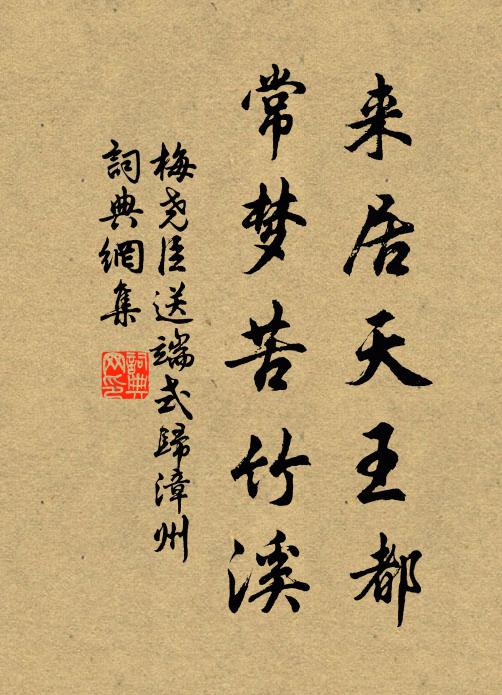 来居天王都
常梦苦竹溪
梅尧臣送端式歸漳州
詞典網集
詞典網印